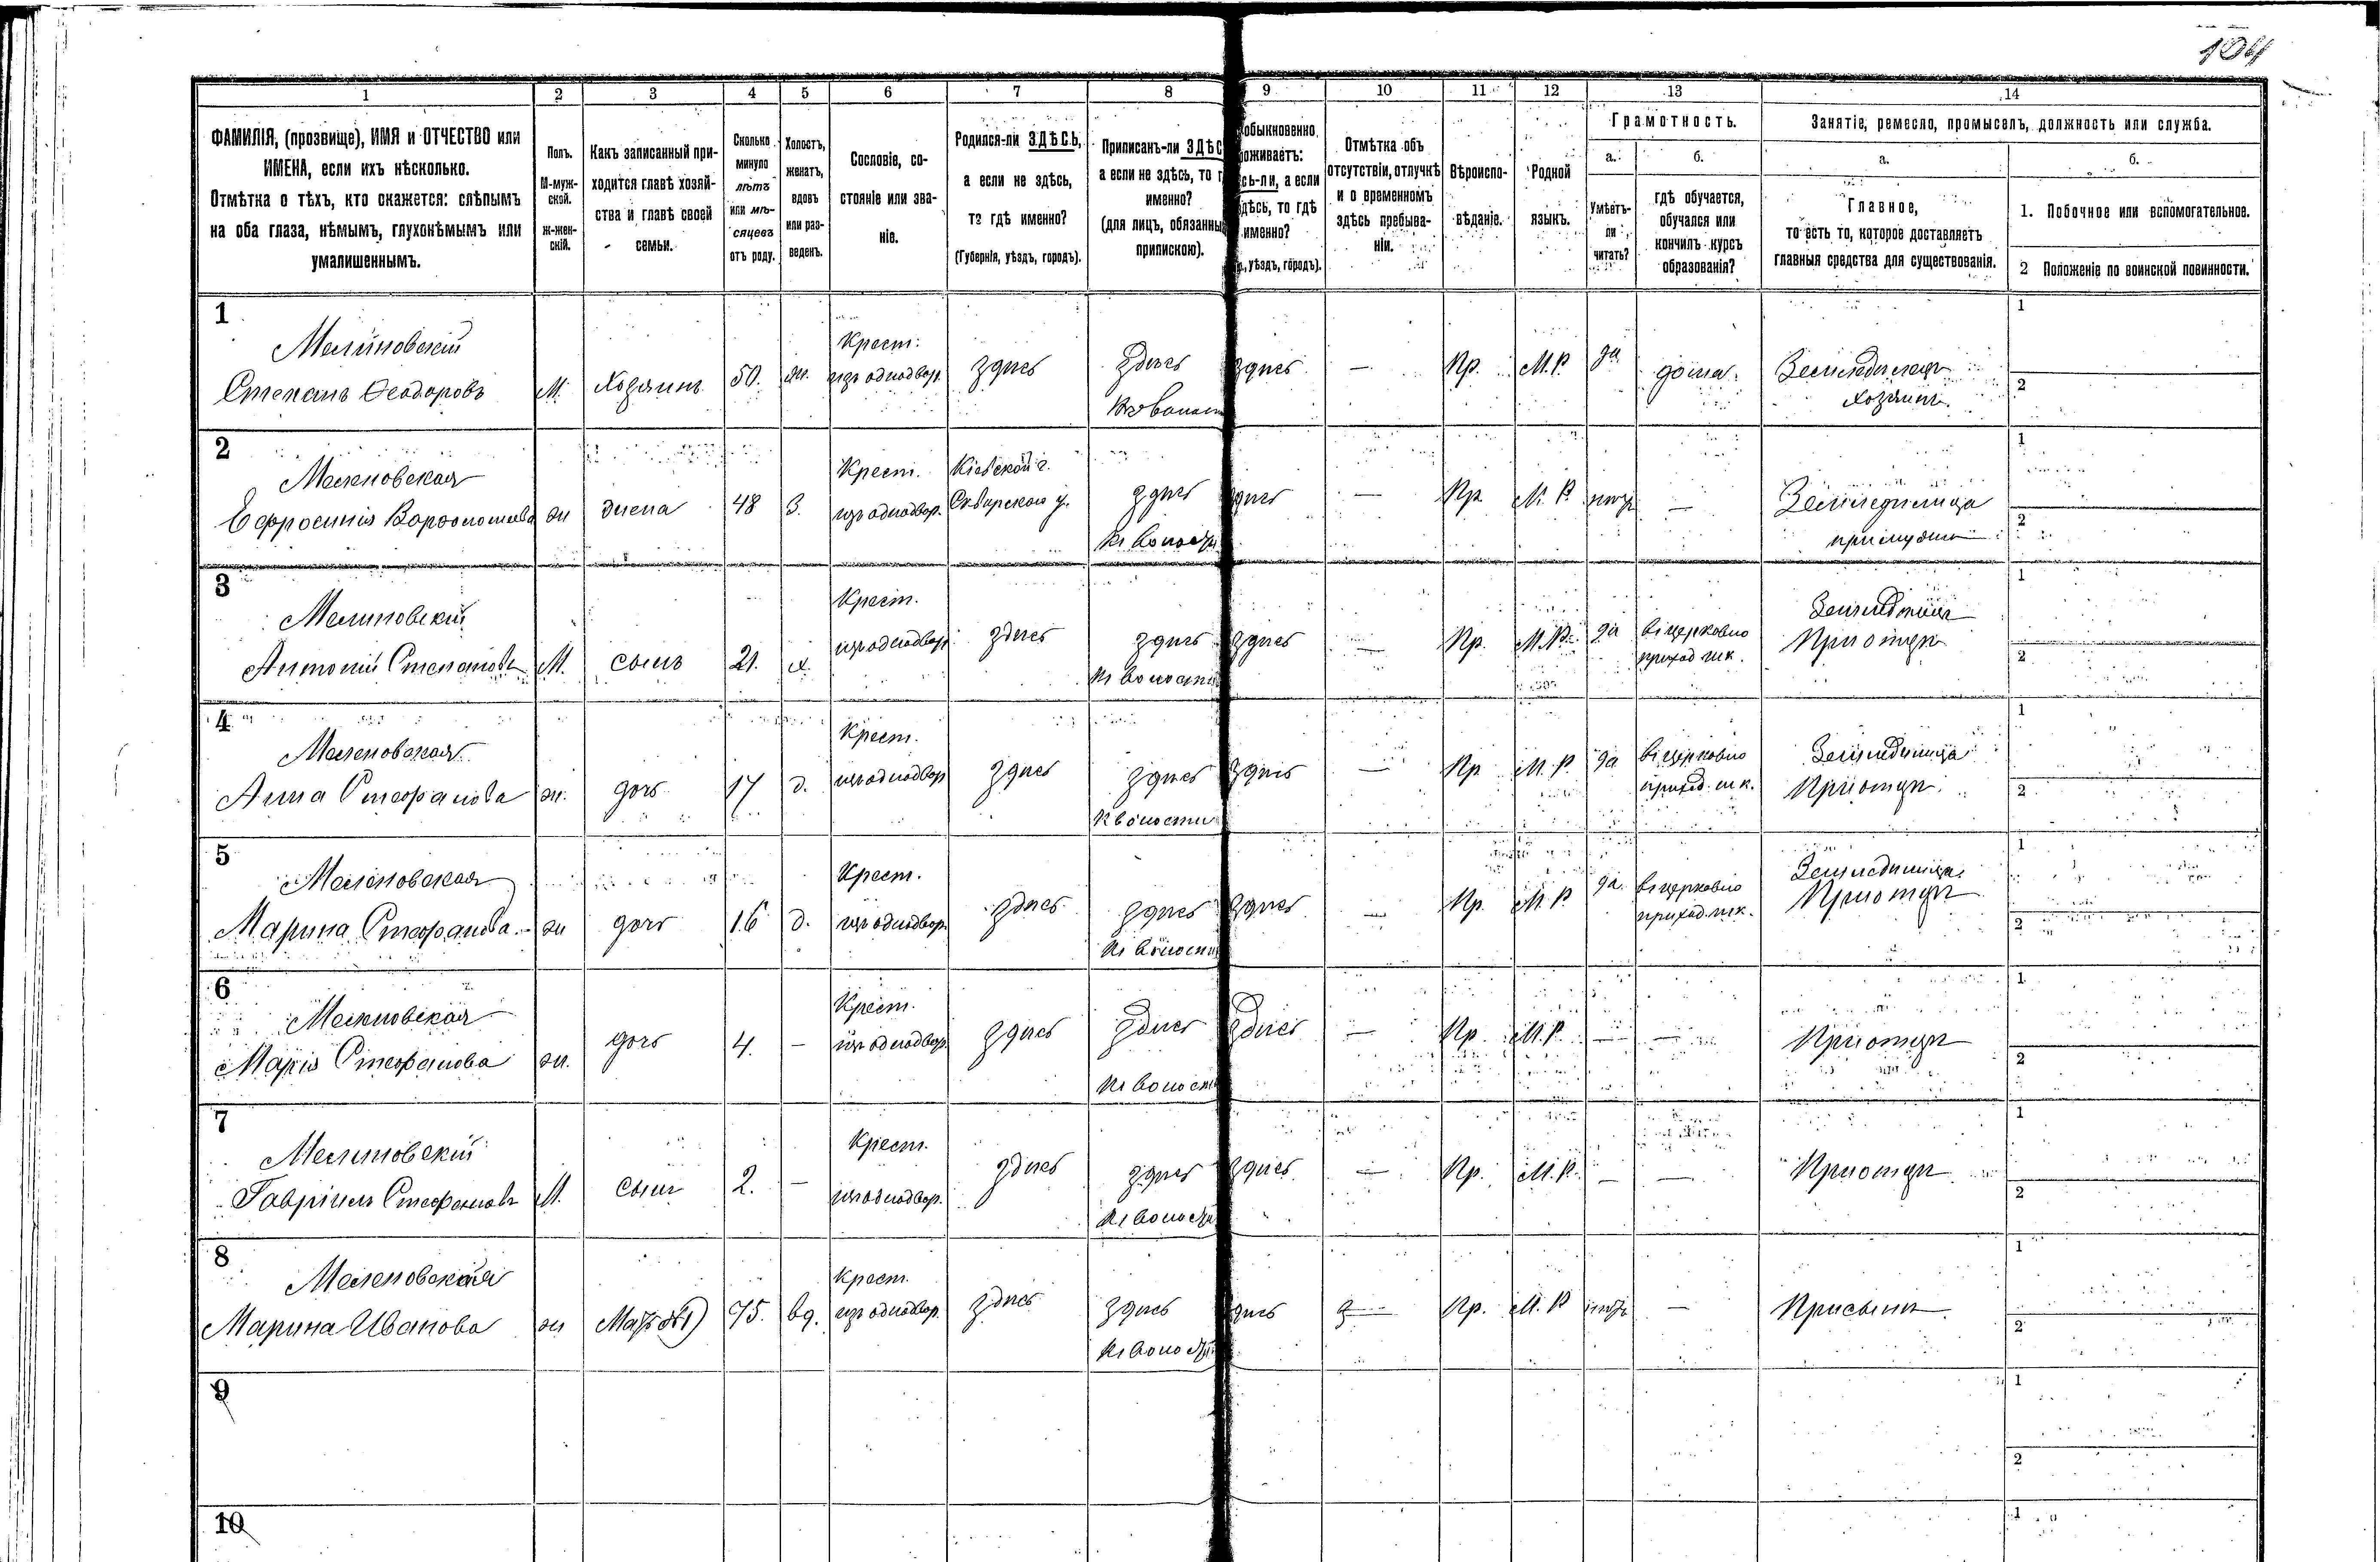 104
1 2 3 4 5 6 7 8 9 10 11 12 13 14
ФАМИЛІЯ, (прозвище), ИМЯ и ОТЧЕСТВО или
ИМЕНА, если ихъ нѣсколько.
Отмѣтка о тѣхъ, кто окажется: слѣпымъ
на оба глаза, нѣмымъ, глухонѣмымъ или
умалишеннымъ.
Полъ.
М-муж-
ской.
ж-жен-
скій.
Какъ записанный при-
ходится главѣ хозяй-
ства и главѣ своей
семьи.
Сколько
минуло
лѣтъ
или мѣ-
сяцевъ
отъ роду.
Холостъ,
женатъ,
вдовъ
или раз-
веденъ.
Сословіе, со-
стояніе или зва-
ніе.
Родился-ли ЗДѢСЬ,
а если не здѣсь,
то гдѣ именно?
(Губернія, уѣздъ, городъ).
Приписанъ-ли ЗДѢС
а если не здѣсь, то г
именно?
(для лицъ, обязанны
припискою).
обыкновенно
оживаетъ:
сь-ли, а если
дѣсь, то гдѣ
именно?
уѣздъ, городъ).
Отмѣтка объ
отсутствіи, отлучкѣ
и о временномъ
здѣсь пребыва-
ніи.
Вѣроиспо-
вѣданіе.
Родной
языкъ.
Грамотность.
а.
Умѣетъ-
ли
читать?
б.
гдѣ обучается,
обучался или
кончилъ курсъ
образованія?
Занятіе, ремесло, промыселъ, должность или служба.
а.
Главное,
то есть то, которое доставляетъ
главныя средства для существованія.
б.
1. Побочное или вспомогательное.
2 Положеніе по воинской повинности.
1
Малиновскій
Степанъ Ѳеодоровъ
М.
Хозяинъ
50.
ж.
Крест.
изъ однодвор.
здѣсь
здѣсь
здѣсь
—
Пр.
М.Р.
да
дома.
Земледѣлецъ
хозяинъ
1
2
2
Малиновская
Ефросинія Варѳоломеева
ж
жена
48
З.
Крест.
изъ однодвор.
Кіевской г.
Сквирскаго у.
здѣсь
къ волости
здѣсь
—
Пр.
М.Р.
нѣтъ
—
Земледѣлица
при мужѣ
1
2
3
Малиновскій
Антоній Степановъ
М.
сынъ
21.
х.
Крест.
изъ однодвор.
здѣсь
здѣсь
къ волости
здѣсь
—
Пр.
М.Р.
да
въ церковно
приход. шк.
Земледѣлецъ
При отцѣ
1
2
4
Малиновская
Анна Стефанова
ж.
дочь
17
д.
Крест.
изъ однодвор
здѣсь
здѣсь
къ волости
здѣсь
—
Пр
М.Р.
да
въ церковно
приход. шк.
Земледѣлица
При отцѣ
1
2
5
Малиновская
Марина Стефанова.
ж
дочь
16
д.
Крест.
изъ однодвор.
здѣсь
здѣсь
къ волости
здѣсь
—
Пр.
М.Р.
да.
въ церковно
приход. шк.
Земледѣлица
При отцѣ
1
2
6
Малиновская
Марія Стефанова
ж.
дочь
4.
—
Крест.
изъ однодвор.
здѣсь
здѣсь
къ волости
здѣсь
—
Пр.
М.Р.
—
—
При отцѣ
1
2
7
Малиновскій
Гавріилъ Стефановъ
М.
сынъ
2.
—
Крест.
изъ однодвор.
здѣсь
здѣсь
къ волости
здѣсь
—
Пр.
М.Р.
—
—
При отцѣ
1
2
8
Малиновская
Марина Иванова
ж
Мать №1)
75.
вд.
Крест.
изъ однодвор.
здѣсь
здѣсь
къ волости
здѣсь
—
Пр.
М.Р
нѣтъ
—
При сынѣ
1
2
9
1
2
10
1